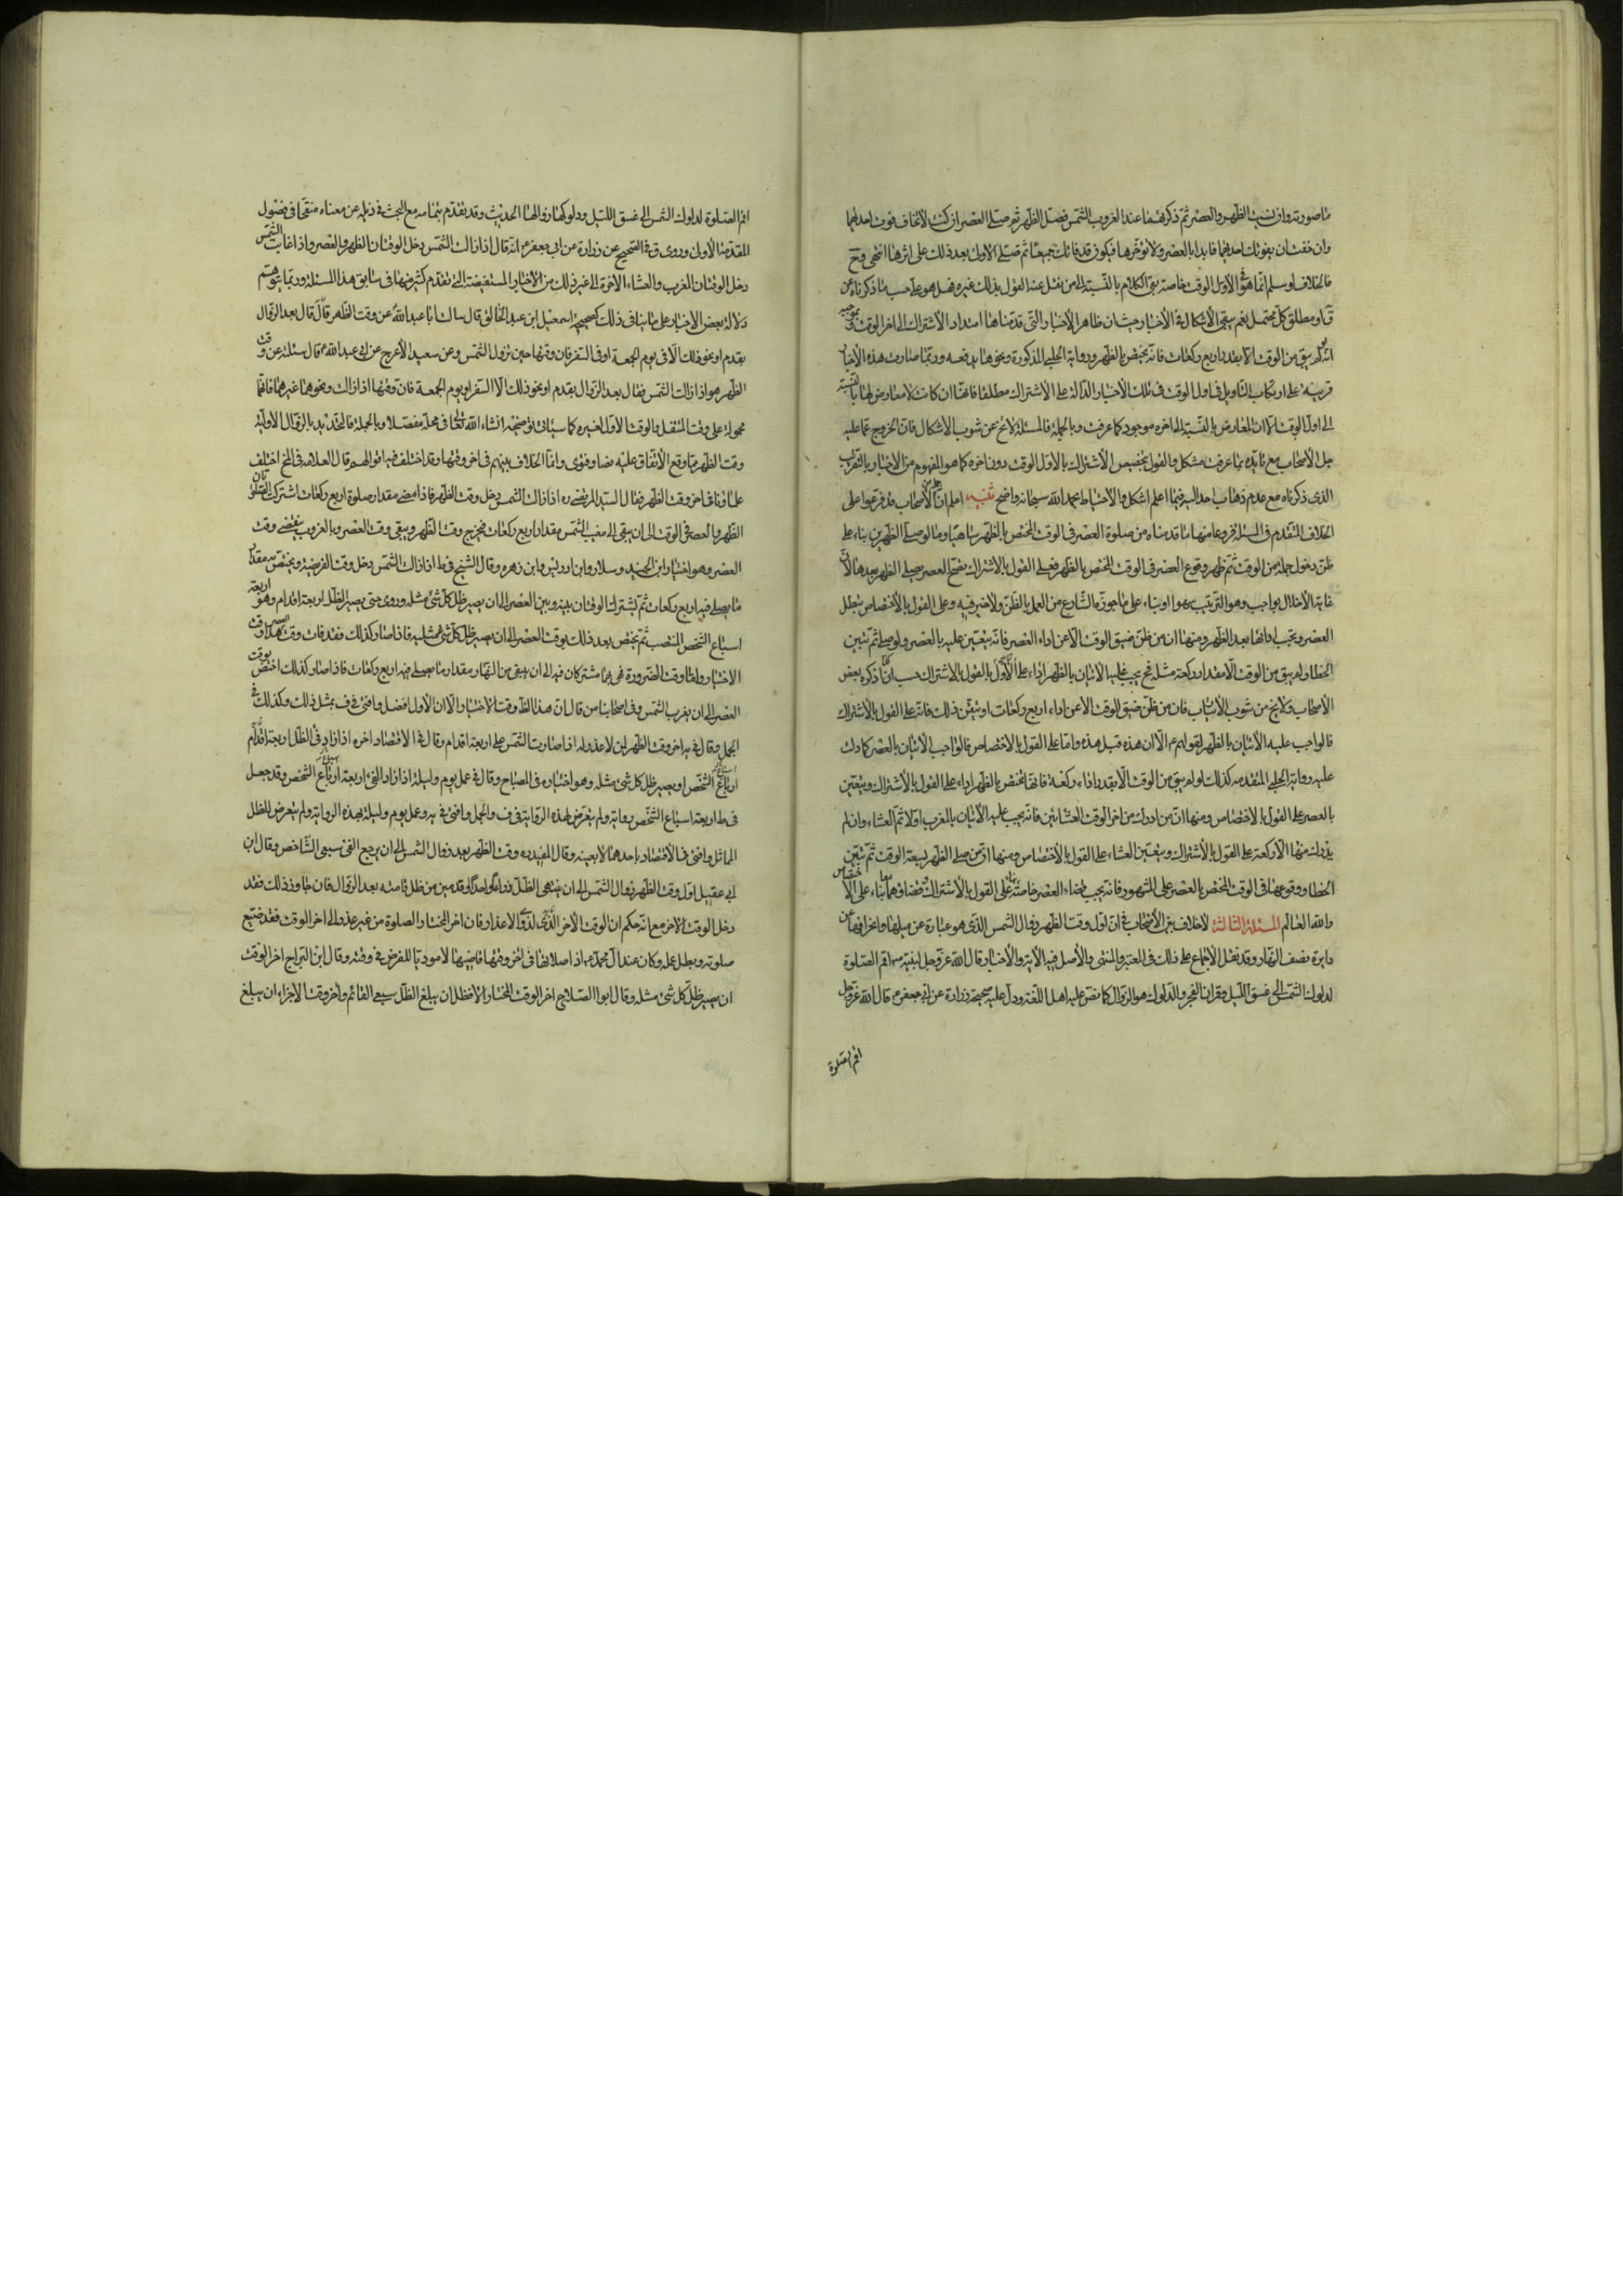 ما صورته وان نسيت الظهر والعصر ثم ذكرتهما عند الغروب الشمس فصل الظهر ثم صلى العصر ان كنت لا تخاف فوت احدهما
وان خفت ان يفوتك احدهما فابدا بالعصر ولا تؤخرها فيكون قد فاتك جميعا ثم تصلى الاولى بعد ذلك على اثرها انتهى وح
فالخلاف لو سلم انما هو فى الاول الوقت خاصة بقى الكلام بالنسبة الى من نقل عنه القول بذلك غيره فهل هو على حسب ما ذكرناه عن
او مطلق كل محتمل نعم يبقى الاشكال فى الاخبار حيث ان ظاهر الاخبار التى قدمناها امتداد الاشتراك الى اخر الوقت
انه لم يبق من الوقت الا بقدر اربع ركعات فانه يختص بالظهر ورواية الحلبى المذكورة ونحوها يدفعه وربما صارت هذه الاخبار
قرينة على ارتكاب التاويل فى اول الوقت فى تلك الاخبار الدالة على الاشتراك مطلقا فانها ان كانت لا معارض لها بالنسبة
الى اول الوقت الا ان المعارض بالنسبة الى اخره موجود كما عرفت وبالجملة فالمسئلة لا تخ عن شوب الاشكال فان الخروج عما عليه
جل الاصحاب مع تايده بما عرفت مشكل والقول بتخصيص الاشتراك بالاول الوقت دون اخره كما هو المفهوم من الاخبار بالتقريب
الذى ذكرناه مع عدم ذهاب احد اليه فيما اعلم اشكل والاحتياط بحمد الله سبحانه واضح تنبيه اعلم ان الاصحاب قد فرعوا على
الخلاف المتقدم فى المسئلة فروعا منها ما قدمناه من صلوة العصر فى الوقت المختص بالظهر ساهيا وما لو صلى الظهرين بناء على
ظن دخول جملة من الوقت ثم ظهر وقوع العصر فى الوقت المختص بالظهر فعلى القول بالاشتراك تصح العصر ويصلى الظهر بعدها لان
غاية الاخلال بواجب وهو الترتيب سهوا او بناء على ما جوزه الشارع من العمل بالظن ولا ضير فيه وعلى القول بالاختصاص تبطل
العصر ويجب اداؤها بعد الظهر ومنها ان من ظن ضيق الوقت الا عن اداء العصر فانه يتعين عليه بالعصر ولو صلى ثم تبين
الخطا ولم يبق من الوقت الا مقدار ركعة مثلا فح يجب عليه الاتيان بالظهر اداء على الاول بالقول بالاشتراك حسب ما ذكره بعض
الاصحاب ولا يخ من شوب الارتياب فان من ظن ضيق الوقت الا عن اداء اربع ركعات او تيقن ذلك فانه على القول بالاشتراك
فالواجب عليه الاتيان بالظهر لقولهم ع الا ان هذه قبل هذه واما على القول بالاختصاص فالواجب الاتيان بالعصر كما دلت
عليه رواية الحلبى المتقدمه كذلك لو لم يبق من الوقت الا بقدر اداء ركعة فانها تختص بالظهر اداء على القول بالاشتراك ويتعين
بالعصر على القول بالاختصاص ومنها ان من ادرك من اخر الوقت العشائين فانه يجب عليه الاتيان بالمغرب اولا ثم العشاء وان لم
يدرك منها الا ركعة على القول بالاشتراك ويتعين العشاء على القول بالاختصاص ومنها ان من صلى الظهر بسعة الوقت ثم تبين
الخطا ووقوعها فى الوقت المختص بالعصر على المشهور فانه يجب قضاء العصر خاصة على القول بالاشتراك وقضاؤهما معا بناء على الاختصاص
والله العالم المسئلة الثالثة لا خلاف بين الاصحاب فى ان اول وقت الظهر زوال الشمس الذى هو عبارة عن ميلها وانحرافها عن
دايرة نصف النهار وقد نقل الاجماع على ذلك فى المعتبر والمنتهى والاصل فيه الاية والاخبار قال الله عز وجل لنبيه ص اقم الصلوة
لدلوك الشمس الى غسق الليل وقران الفجر والدلوك هو الزوال كما نص عليه اهل اللغة ودل عليه صحيحة زرارة عن ابى جعفر ع قال الله عز وجل
اقم الصلوة
اقم الصلوة لدلوك الشمس الى غسق الليل ودلوكها زوالها الحديث وقد تقدم بتمامه مع البحث فى ذيله عن معناه منقحا فى فصول
المقدمة الاولى وروى فى الصحيح عن زرارة عن ابى جعفر ع انه قال اذا زالت الشمس دخل الوقتان الظهر والعصر واذا غابت الشمس
دخل الوقتان المغرب والعشاء الاخرة الى غير ذلك من الاخبار المستفيضة التى تقدم كثير منها فى سابق هذا المسئلة وربما يتوهم
دلالة بعض الاخبار على ما ينافى ذلك كصحيحة اسمعيل ابن عبد الخالق قال سالت ابا عبد الله ع عن وقت الظهر قال بعد الزوال
بقدم او نحو ذلك الا فى يوم الجمعة او فى السفر فان وقتها حين تزول الشمس وعن سعيد الاعرج عن ابى عبد الله ع قال سئلته عن وقت
الظهر هو اذا زالت الشمس فقال بعد الزوال بقدم او نحو ذلك الا السفر او يوم الجمعة فان وقتها اذا زالت ونحوهما غيرهما فانها
محمولة على وقت المتنفل والوقت الاول لغيره كما سياتى توضيحه انشاء الله تعالى فى محله مفصلا وبالجملة فالتحديد بالزوال الاولية
وقت الظهر مما وقع الاتفاق عليه نصا وفتوى وانما الخلاف بينهم فى اخر وقتها وقد اختلف فيه اقوالهم قال العلامه فى المخ اختلف
علماؤنا فى اخر وقت الظهر فقال السيد المرتضى ره اذا زالت الشمس دخل وقت الظهر فاذا مضى مقدار صلوة اربع ركعات اشترك الصلوتان
الظهر والعصر فى الوقت الى ان يبقى الى مغيب الشمس مقدار اربع ركعات فيخرج وقت الظهر ويبقى وقت العصر وبالغروب ينقضى وقت
العصر وهو اختيار ابن الجنيد وسلار وابن ادريس وابن زهره وقال الشيخ فى ط اذا زالت الشمس دخل وقت الفريضة ويختص به مقدار
ما يصلى فيه اربع ركعات ثم يشترك الوقتان بينه وبين العصر الى ان يصير ظل كل شئ مثله وروى حتى يصير الظل اربعة اقدام وهو اربعة
اسباع الشخص المنتصب ثم يختص بعد ذلك بوقت العصر الى ان يصير ظل كل شئ مثليه فاذا صار كذلك فقد فات وقت العصر هذا وقت
الاختيار واما وقت الضرورة فهما مشتركان فيه الى ان يبقى من النهار مقدار ما يصلى فيه اربع ركعات فاذا صار كذلك اختص بوقت
العصر الى ان يغرب الشمس وفى اصحابنا من قال ان هذا الظ وقت الاختيار الا ان الاول افضل وافتى فى ف بمثل ذلك وكذلك فى
الجمل وقال فى يه اخر وقت الظهر لمن لا عذر له اذا صارت الشمس على اربعة اقدام وقال فى الاقتصاد اخره اذا زاد فى الظل اربعة اقدام
الشخص او يصير ظل كل شئ مثله وهو اختياره فى المصباح وقال فى عمل يوم وليلة اذا زاد الفئ اربعة اسباع الشخص وقد جعل
فى ط اربعة اسباع الشخص رواية ولم يتعرض لهذه الرواية فى ف والجمل وافتى فى يه وعمل يوم وليلة بهذه الرواية ولم يتعرض للظل
المماثل وافتى فى الاقتصاد باحدهما لا بعينه وقال المفيد ره وقت الظهر بعد زوال الشمس الى ان يرجع الفئ سبعى الشاخص وقال ابن
ابى عقيل اول وقت الظهر زوال الشمس الى ان ينتهى الظل ذراعا واحدا او قدمين من ظل قامته بعد الزوال فان جاوز ذلك فقد
دخل الوقت الاخر مع انه حكم ان الوقت الاخر لذوى الاعذار فان اخر المختار الصلوة من غير عذر الى اخر الوقت فقد ضيع
صلوته وبطل عمله وكان عند ال محمد ع اذا صلاها فى اخر وقتها قاضيها لا موديا للفرض فى وقته وقال ابن البراج اخر الوقت
ان يصير ظل كل شئ مثله وقال ابو الصلاح اخر الوقت المختار الافضل ان يبلغ الظل سبعى القائم واخر وقت الاجزاء ان يبلغ